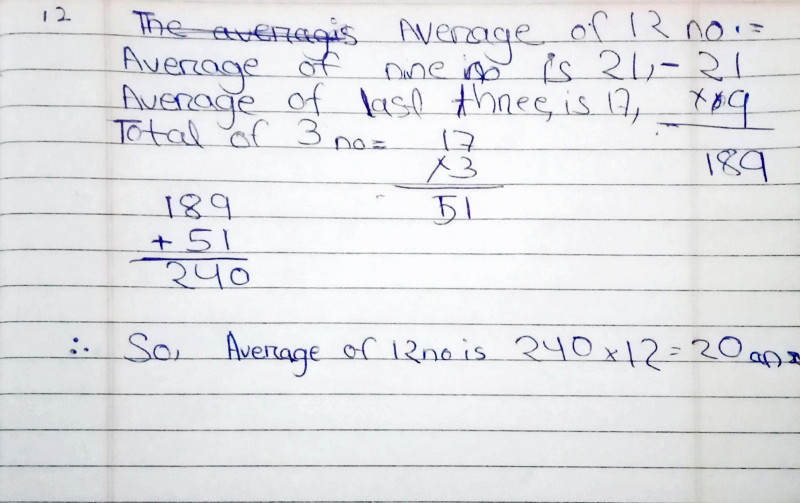 12 The averagis Average of 12 no.=
Average of nine no is 21,- 21
Average of last three, is 17, × 9
Total of 3 no= 17
×3
189
51
189
+ 51
240
∴ So, Average of 12 no is 240 × 12 = 20 ans